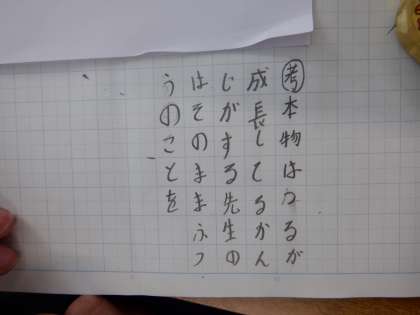 考本物はうるが
成長してるかん
じがする先生の
はそのまま ふつ
うのことを